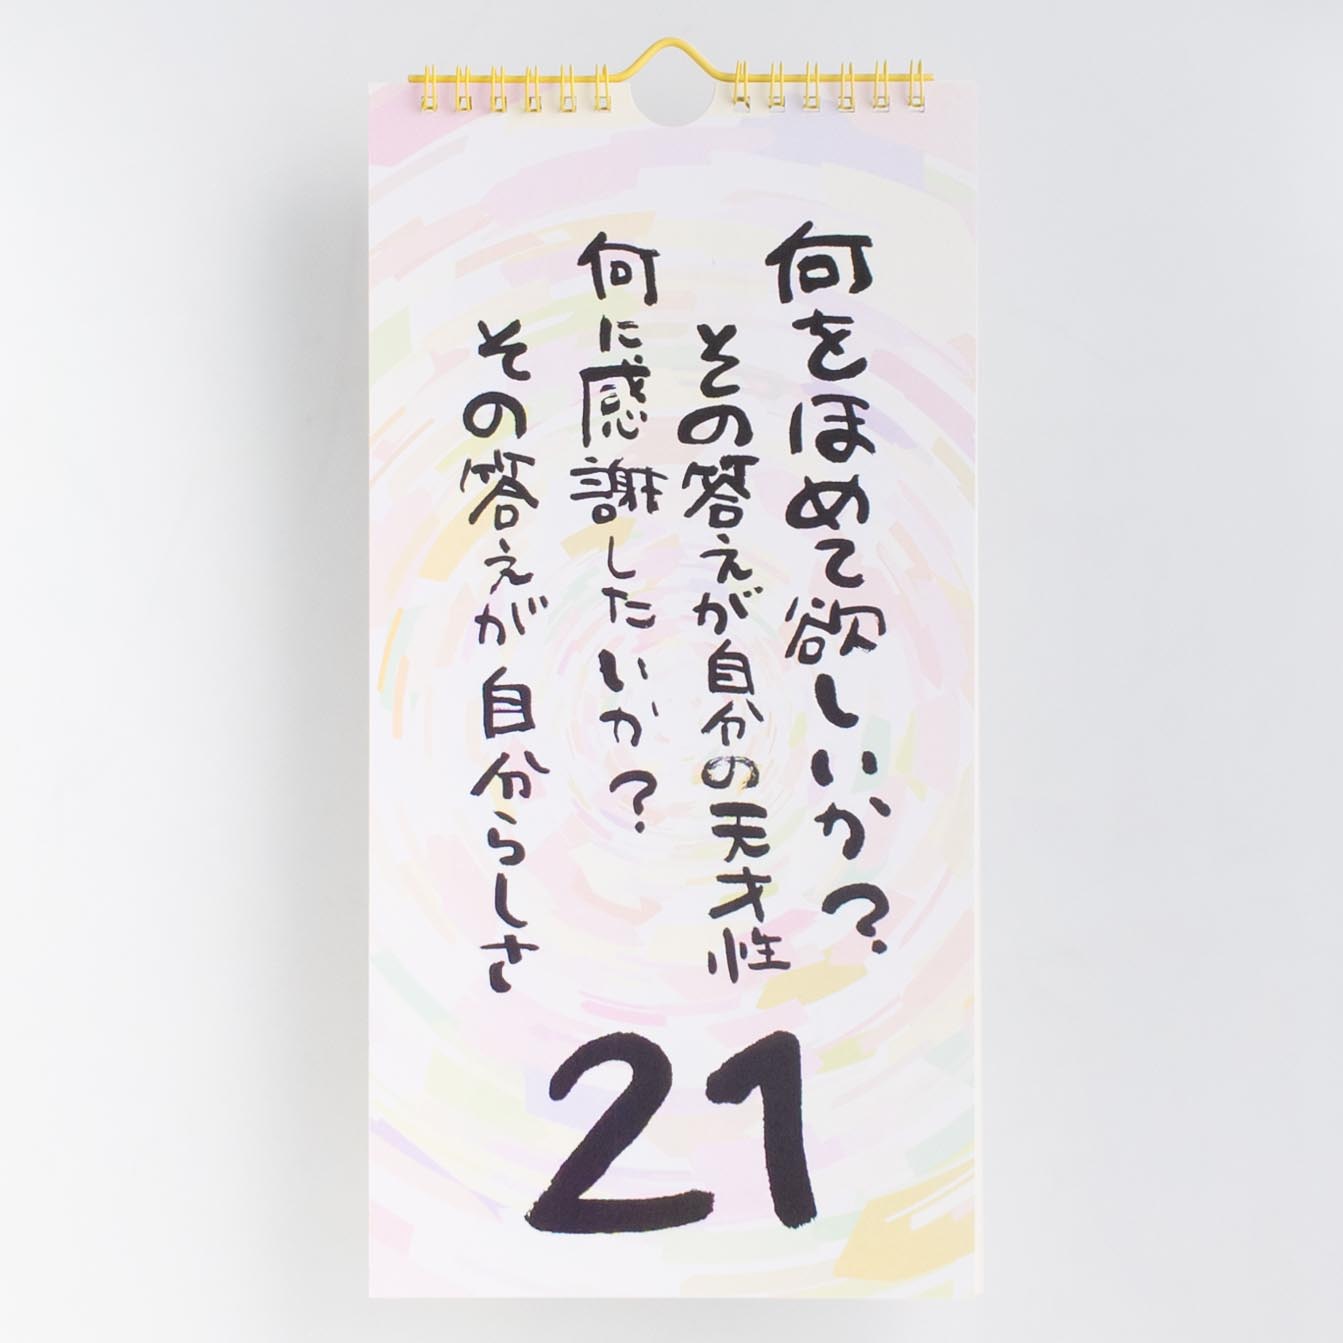 何をほめて欲しいか？
その答えが自分の天才性
何に感謝したいか？
その答えが自分らしさ
21